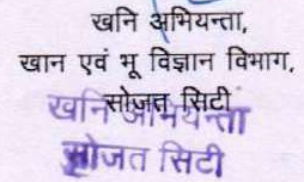 खनि अभियन्ता,
खान एवं भू विज्ञान विभाग,
सोजत सिटी
खनि अभियन्ता
सोजत सिटी